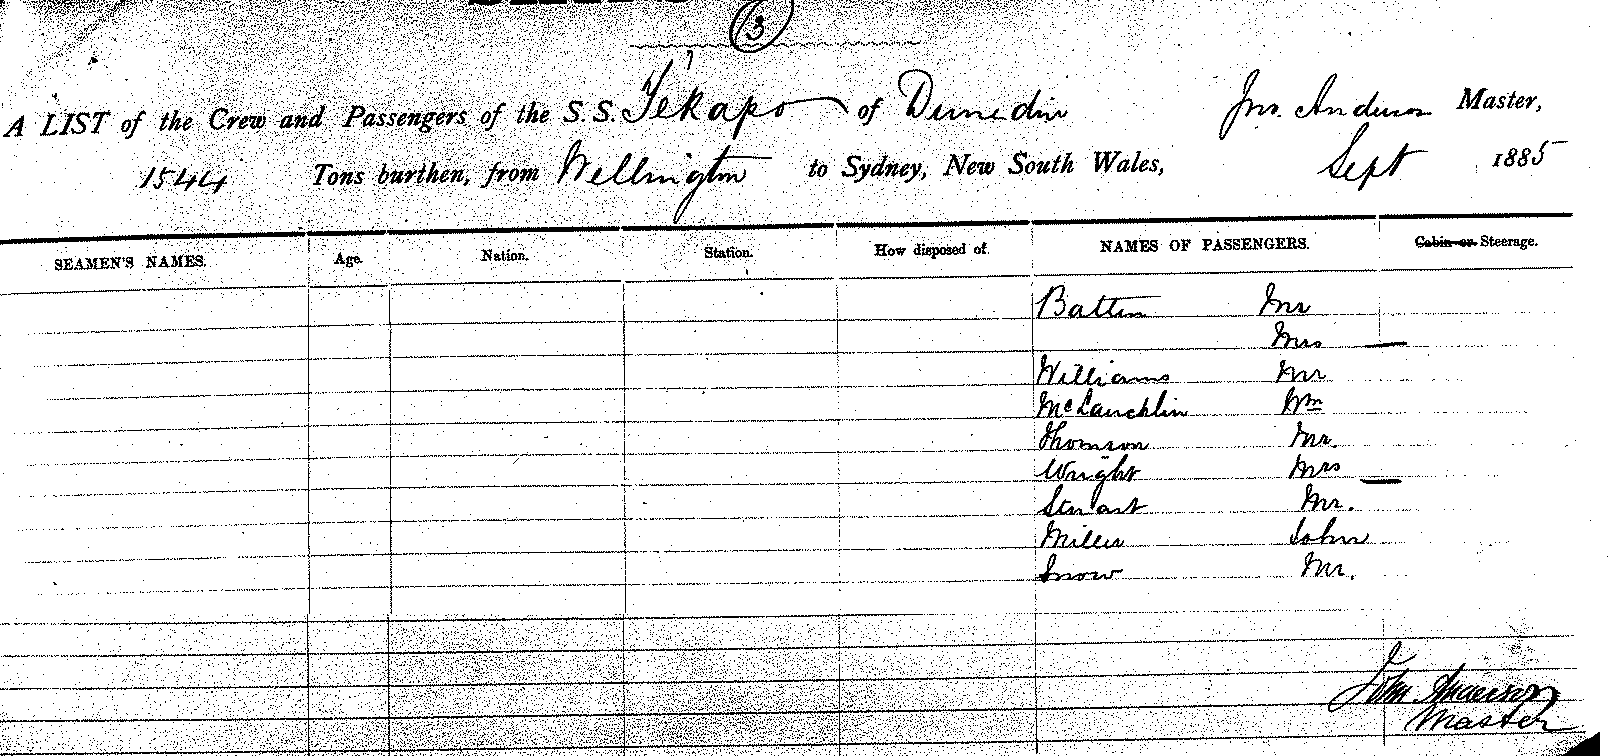 3
A LIST of the Crew and Passengers of the S.S. Tekapo of Dunedin Jno. Anderson Master,
1544 Tons burthen, from Wellington to Sydney, New South Wales, Sept 1885
SEAMEN'S NAMES. Age. Nation. Station. How disposed of. NAMES OF PASSENGERS. Cabin or Steerage.
Batten Mr
Mrs
Williams Mr
McLauchlin Wm
Thomson Mr.
Wright Mrs
Stewart Mr.
Miller John
Snow Mr.
John Anderson
Master